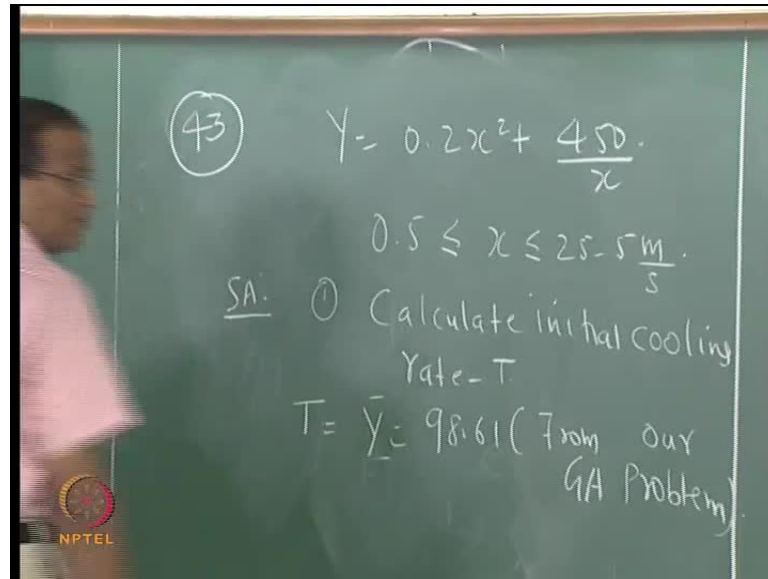 43
Y = 0.2x² + 450/x.
0.5 ≤ x ≤ 25.5 m/s.
SA: ① Calculate initial cooling
rate - T
T = Ȳ = 98.61 (From our
GA Problem).
NPTEL